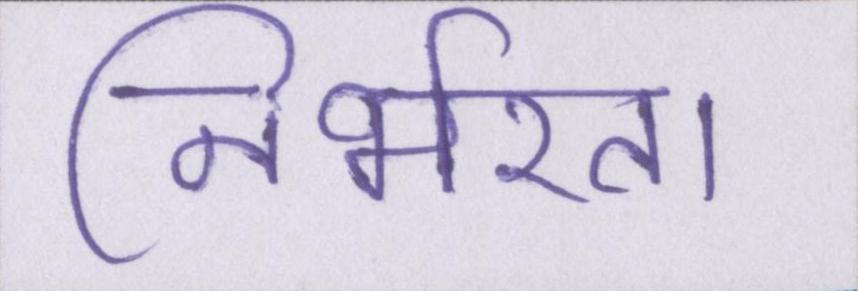 निर्भरता